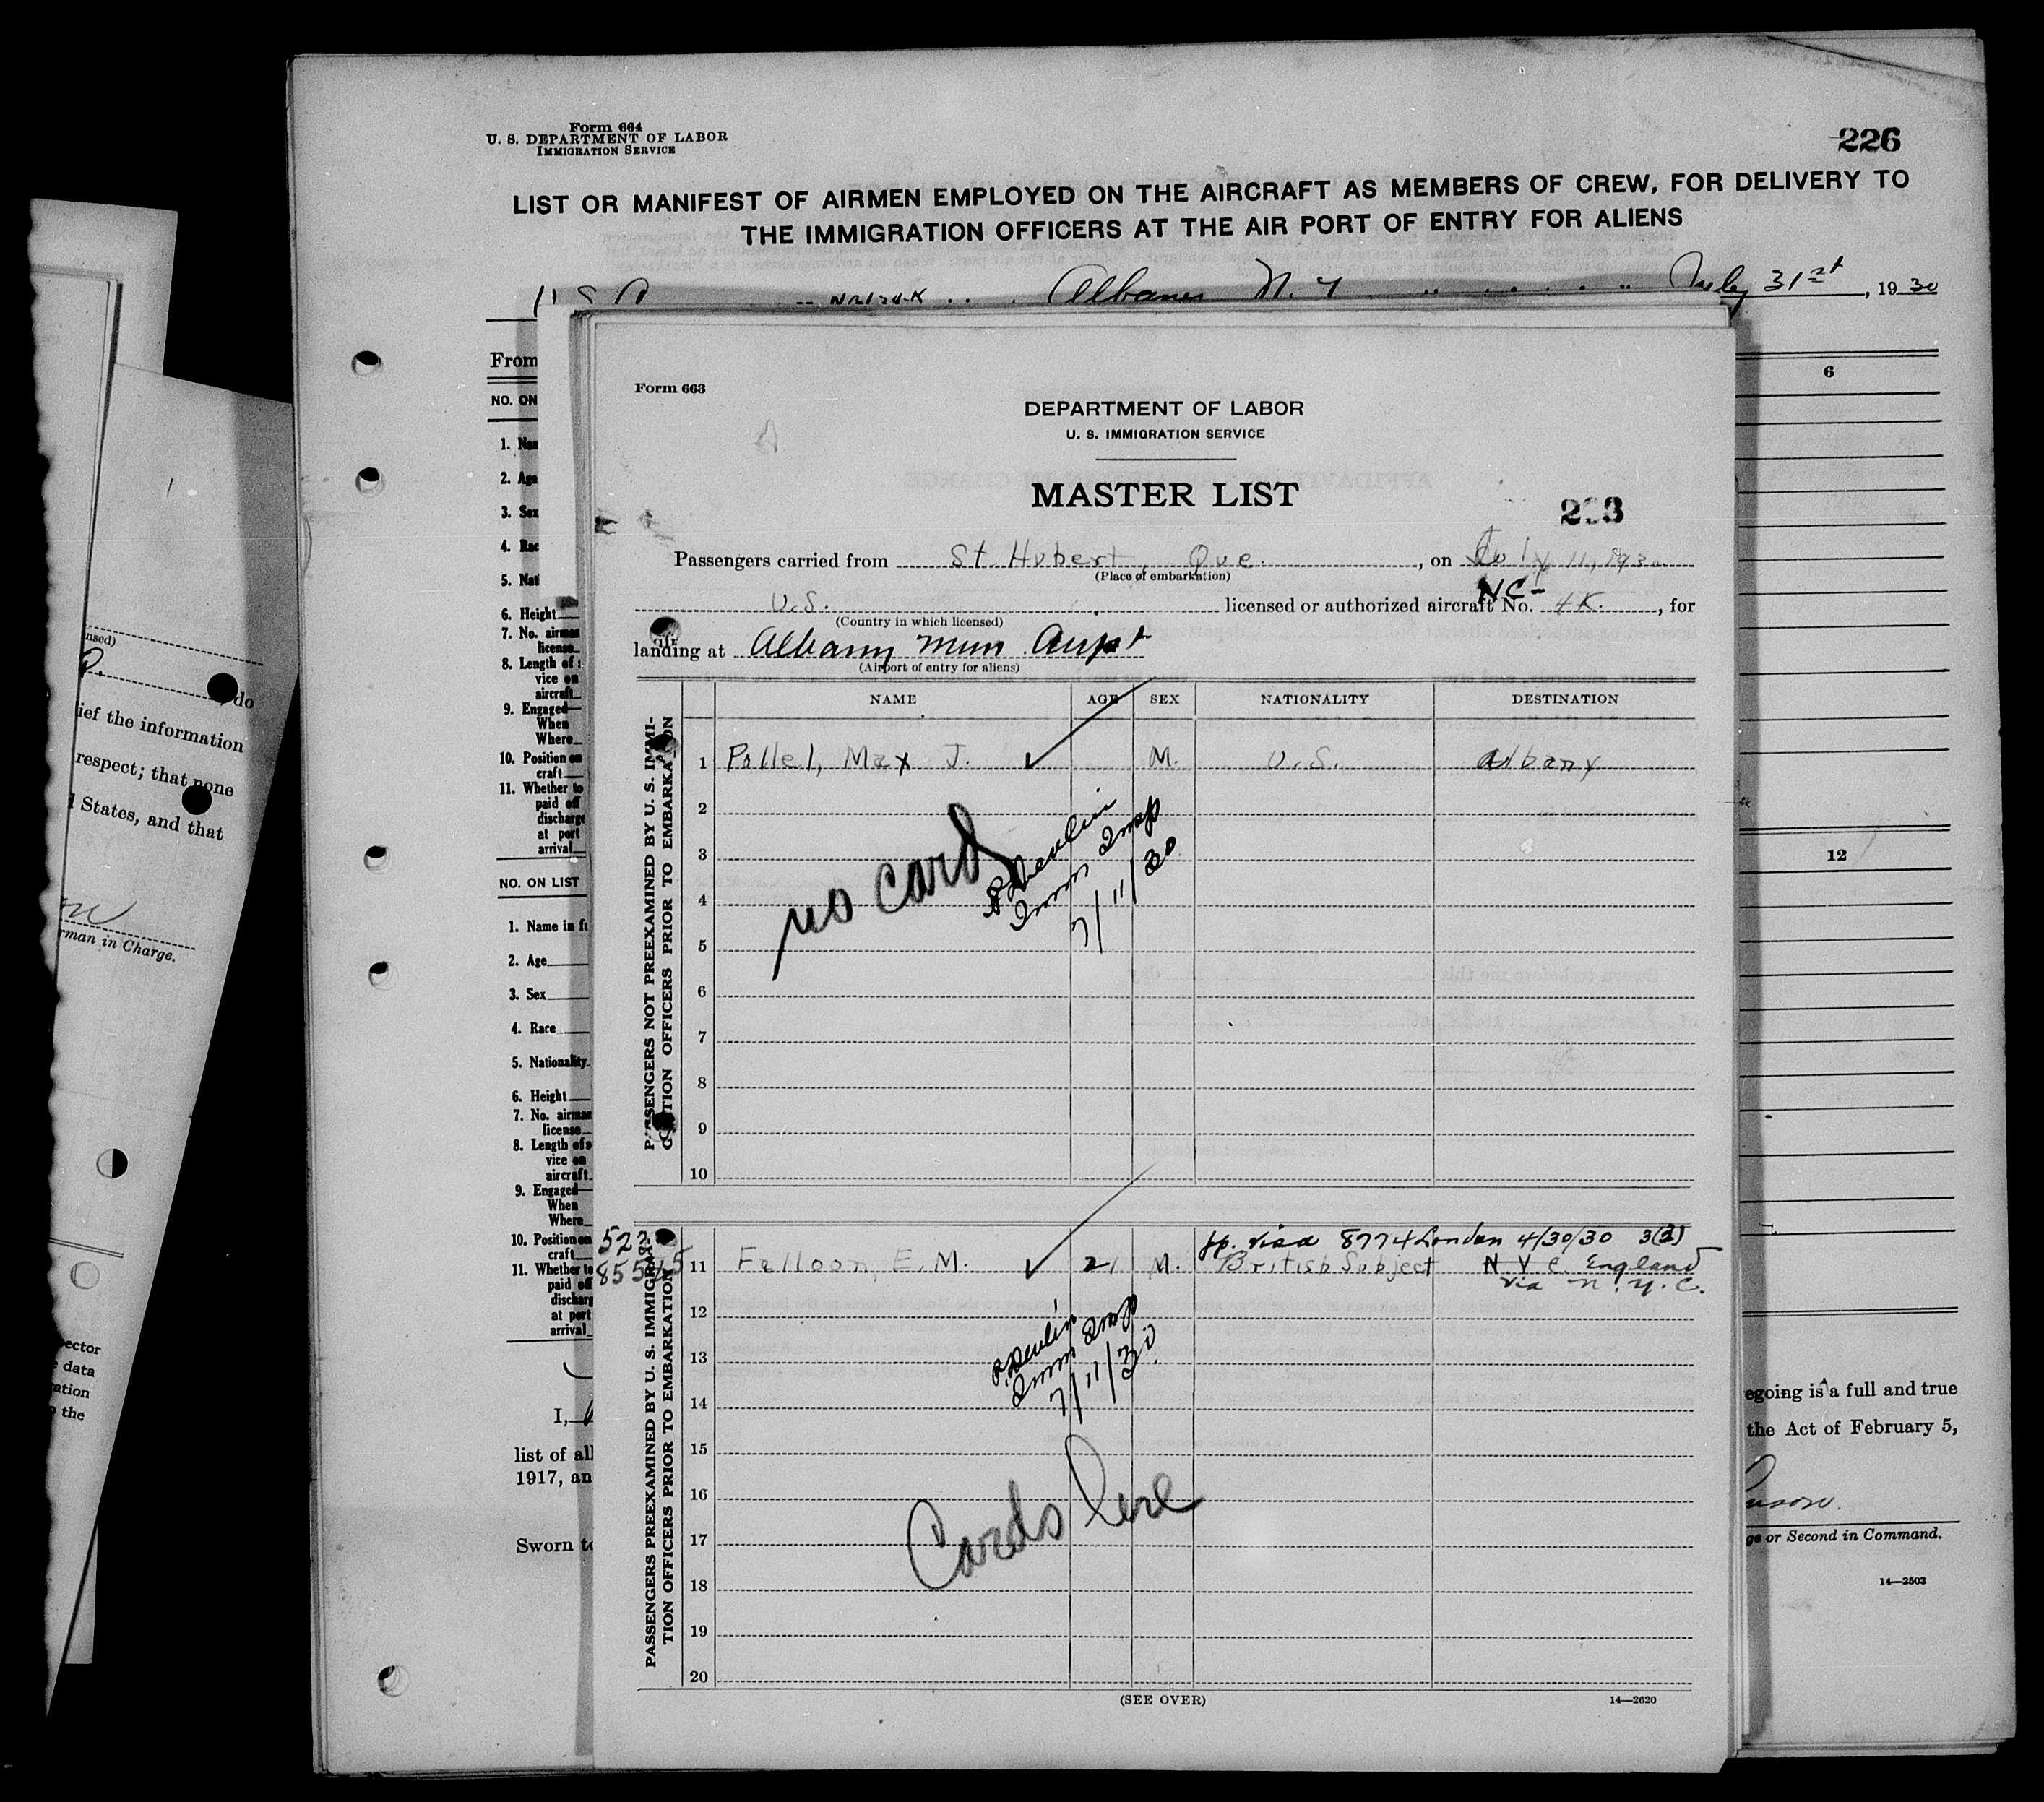 Form 664
U. S. DEPARTMENT OF LABOR
IMMIGRATION SERVICE
226
LIST OR MANIFEST OF AIRMEN EMPLOYED ON THE AIRCRAFT AS MEMBERS OF CREW, FOR DELIVERY TO
THE IMMIGRATION OFFICERS AT THE AIR PORT OF ENTRY FOR ALIENS
Albany N. Y July 31st, 1930
From
6
NO. ON
1. Nam
2. Age
3. Sex
4. Rac
5. Nati
6. Height
7. No. airman
license
8. Length of s
vice on
aircraft
9. Engaged
When
Where
10. Position on
craft
11. Whether to
paid off
discharge
at port
arrival
12
NO. ON LIST
1. Name in fu
2. Age
3. Sex
4. Race
5. Nationality
6. Height
7. No. airman
license
8. Length of s
vice on
aircraft
9. Engaged
When
Where
10. Position on
craft
11. Whether to
paid off
discharg
at port
arrival
I,
list of all
1917, an
Sworn to
egoing is a full and true
the Act of February 5,
ge or Second in Command.
14—2503
Form 663
DEPARTMENT OF LABOR
U. S. IMMIGRATION SERVICE
MASTER LIST
Passengers carried from St. Hubert, Que., on July 11, 1930
(Place of embarkation)
U.S. licensed or authorized aircraft No. NC-4K, for
(Country in which licensed)
landing at Albany Mun Airpt
(Airport of entry for aliens)
NAME AGE SEX NATIONALITY DESTINATION
PASSENGERS NOT PREEXAMINED BY U. S. IMMI-
GRATION OFFICERS PRIOR TO EMBARKATION
1 Pollet, Max J. ✓ M. U.S. Albany
2
3
4
5
6
7
8
9
10
no card
Devlin
Imm Insp
7/11/30
PASSENGERS PREEXAMINED BY U. S. IMMIGRA-
TION OFFICERS PRIOR TO EMBARKATION
pp. visa 8774 London 4/30/30 3(2)
11 Falloon, E. M. ✓ 21 M. British Subject N Y C. England
via N.Y.C.
12
13
14
15
16
17
18
19
20
Devlin
Imm Insp
7/11/30
Cards here
(SEE OVER)
14—2620
nsed)
, do
ief the information
respect; that none
d States, and that
rman in Charge.
ector
data
ation
the